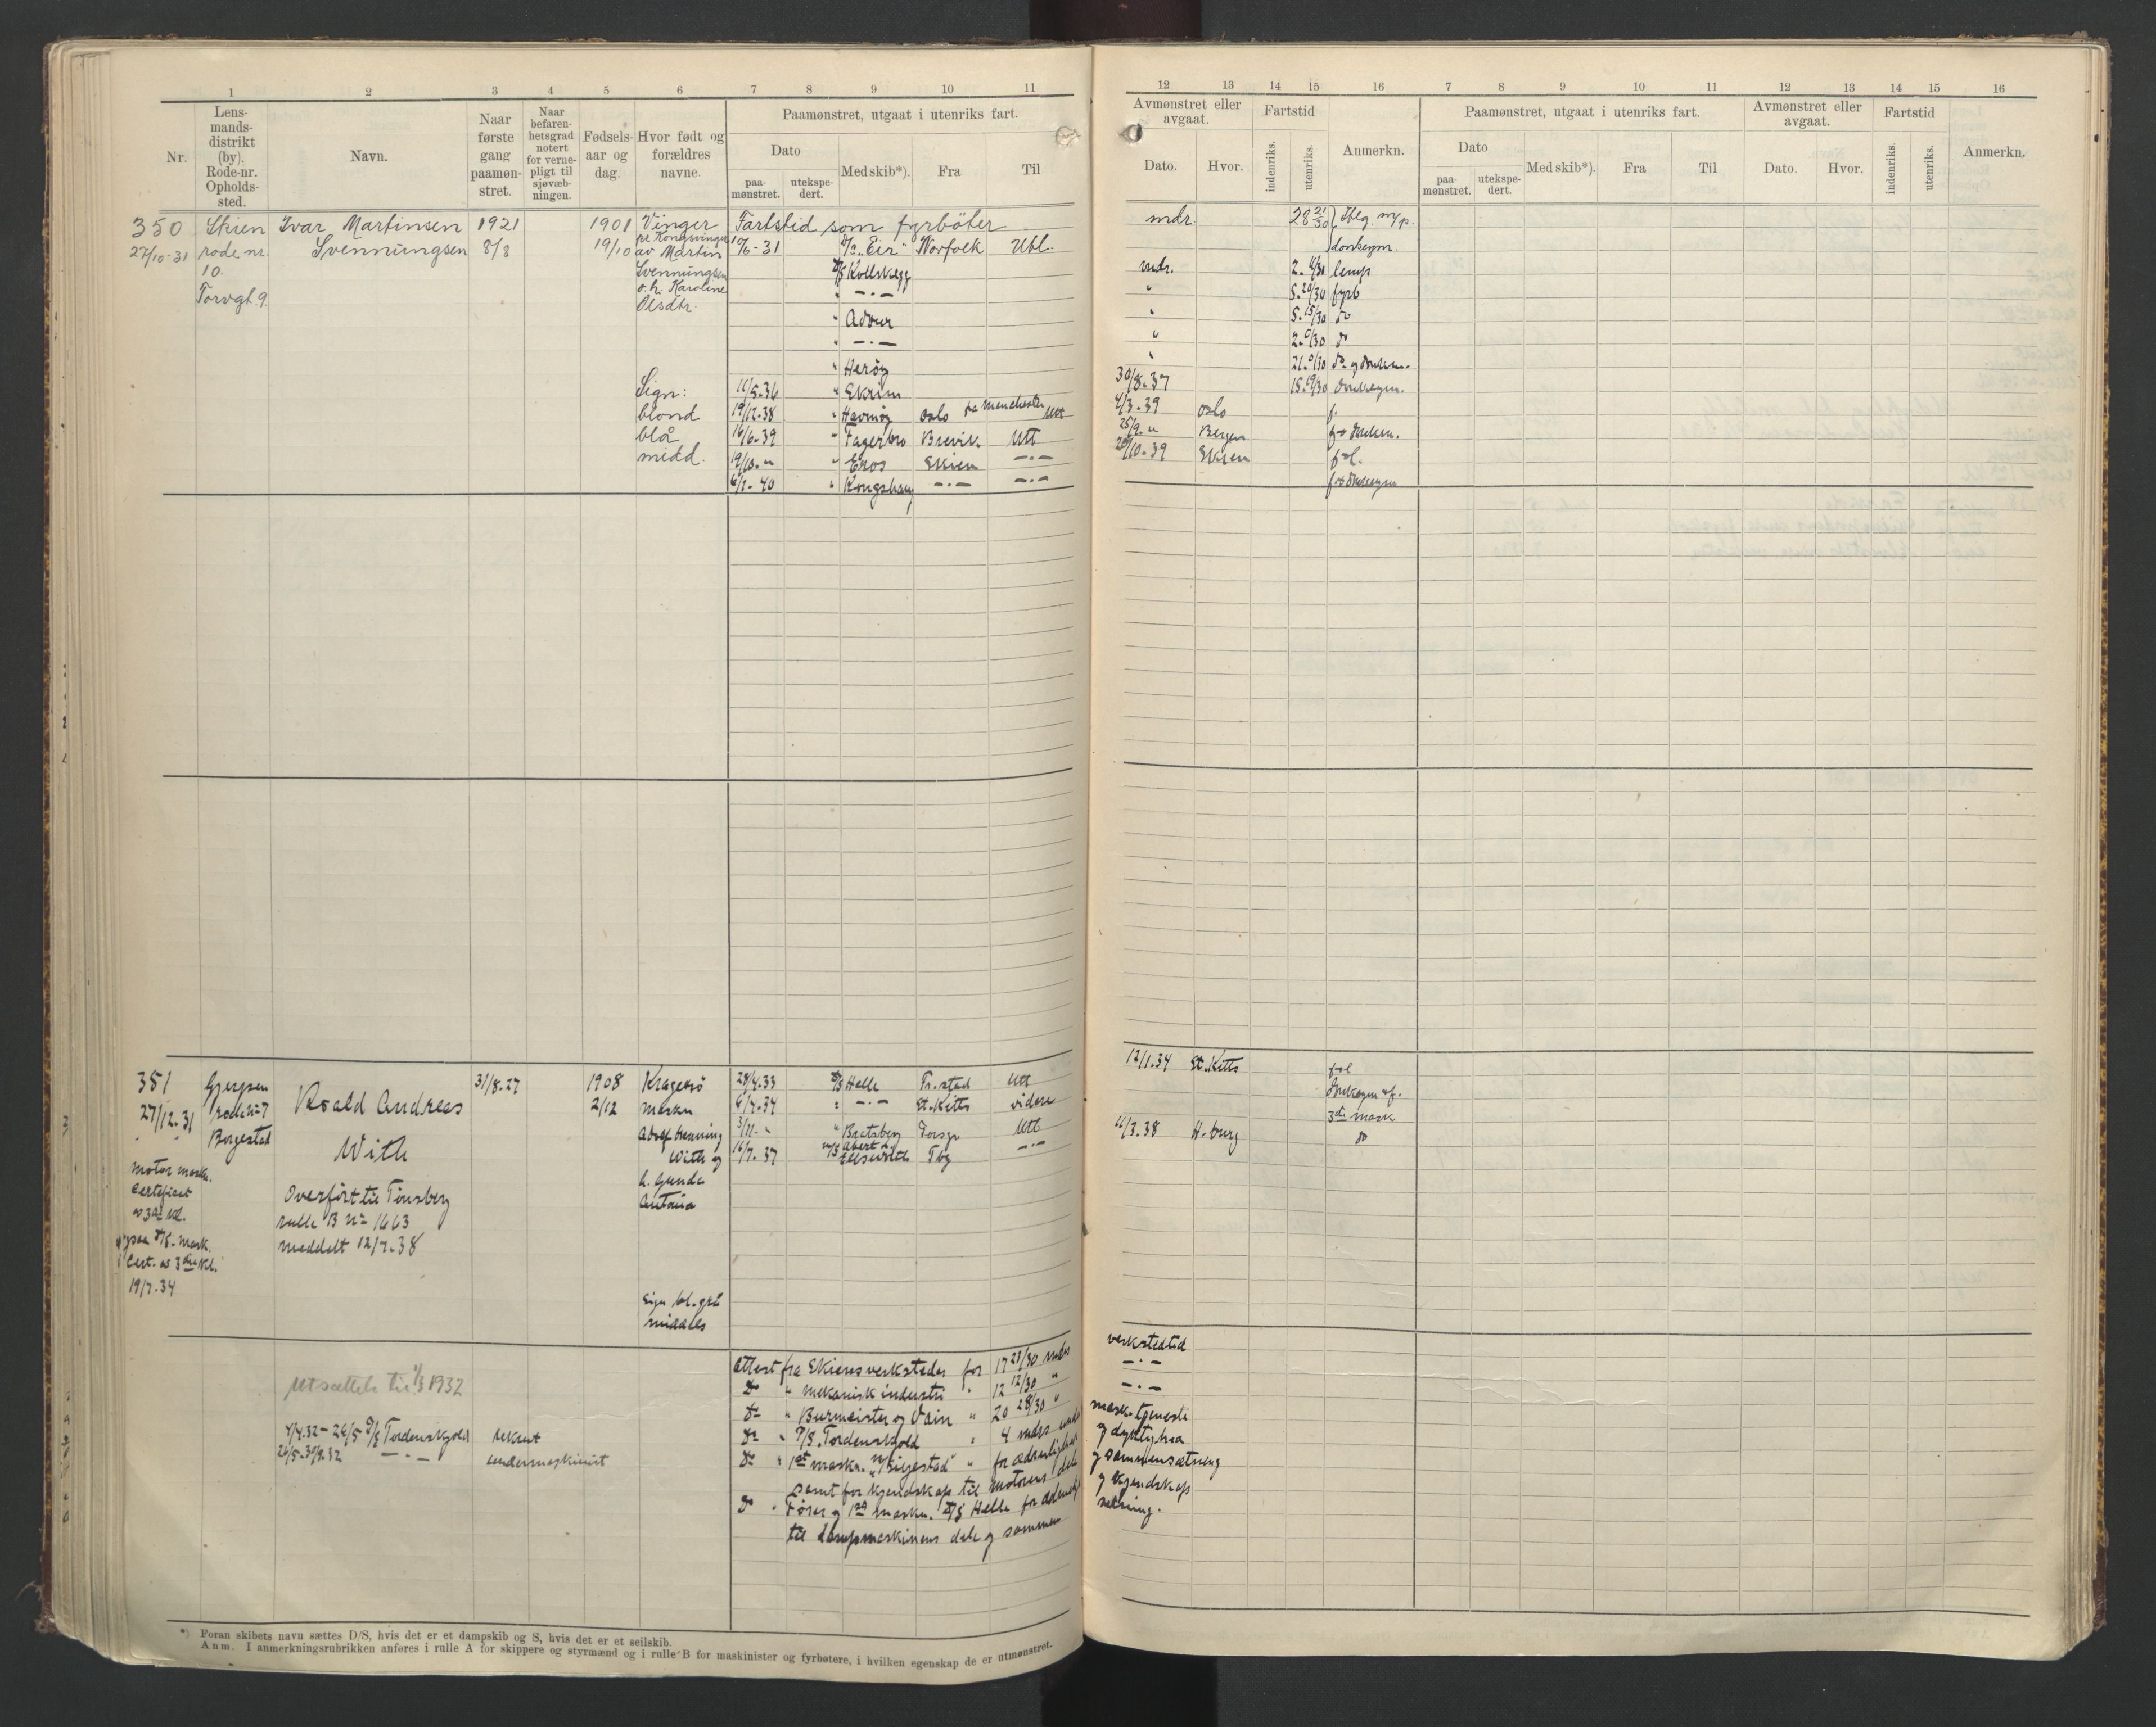 1 2 3 4 5 6 7 8 9 10 11
Nr.
Lens-
mands-
distrikt
(by).
Rode-nr.
Opholds-
sted.
Navn.
Naar
første
gang
paamøn-
stret.
Naar
befaren-
hetsgrad
notert
for verne-
pligt til
sjøvæb-
ningen.
Fødsels-
aar og
dag.
Hvor født og
forældres
navne.
Paamønstret, utgaat i utenriks fart.
Dato
paa-
mønstret.
utekspe-
dert.
Med skib*).
Fra
Til
350 Skien Ivar Martinsen 1921 1901 Vinger Fartstid som fyrbøter
27/10-31 rode nr. Svennungsen 8/8 19/10 pr. Kongsvinger
av Martin 10/6-31 D/S "Eir" Norfolk Utl.
10. Svennungsen D/S Kollskegg
Torvgt. 9 o. h. Karoline " -·-
Olsdtr. " Advur
" -·-
" Herøy
Sign: 11/5-36 " Ekrim
blond 19/12-38 " Havmøy Oslo fra Manchester Utl
blå 16/6-39 " Fagerbro Brevik Utl
midd. 19/10-" " Eros Skien -·-
6/1-40 " Kongshaug -·- -·-
351 Gjerpen Roald Andreas 31/8-27 1908 Kragerø 28/4.33 D/S Helle Fr.stad Utl
27/12-31 rode nr 7 2/12 maskn " -·- St. Kitts videre
Borgestad With Adolf Henning 3/11-" " Bratsberg Porsgr Utl
With og 16/7-37 M/S Tbg -·-
h. Gunda
Antonia
motor mask.
Certificat
av 3die Kl.
ogsaa D/S. mask.
Cert. av 3die Kl.
19/7-34
Overført til Tønsberg
rulle B nr 1663
meddelt 12/7-38
Sign bl. grå
middels
Utsættelse til 1/3 1932
4/4.32 - 26/5 O/S Tordenskjold rekrut
26/5-30/9.32 -·- undermaskinist
Attest fra Skiensverksteder for 17 23/30 mndr
do " mekanisk industri " 12 12/30 "
do " Burmeister og Vain " 20 28/30 "
do " P/S. Tordenskjold " 4 mdrs
do " 1st maskn. for ædruelighet
samt for kjendskap til motorens dele
do " Fører og 1st maskn. D/S Helle for
til dampmaskinens dele og sammen
*) Foran skibets navn sættes D/S, hvis det er et dampskib og S, hvis det er et seilskib.
Anm. I anmerkningsrubrikken anføres i rulle A for skippere og styrmænd og i rulle B for maskinister og fyrbøtere, i hvilken egenskap de er utmønstret.
12 13 14 15 16 7 8 9 10 11 12 13 14 15 16
Avmønstret eller
avgaat.
Dato. Hvor.
Fartstid
indenriks.
utenriks.
Anmerkn.
Paamønstret, utgaat i utenriks fart.
Dato
paa-
mønstret.
utekspe-
dert.
Med skib*).
Fra
Til
Avmønstret eller
avgaat.
Dato. Hvor.
Fartstid
indenriks.
utenriks.
Anmerkn.
mdr. 28 21/30
donkeym.
mdr. lemp
" 5. 20/30 fyrb
" 5. 15/30 do
" 2. 0/30 do
" 21. 0/30 do og donkm.
30/8-37 15. 19/30 donkeym.
4/3-39 Oslo f.
25/9-" Bergen f og donkm.
20/10-39 Skien
12/1.34 St. Kitts
donkeym og f.
3die mask
11/3.38 H.burg do
verkstedtid
-·-
-·-
mask. tjeneste
og dyktighet
og sammensætning
og kjendskap
setning.